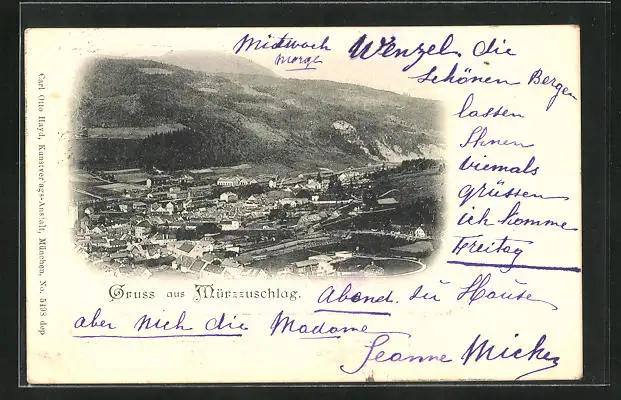 Mittwoch Wenzel die
Morge
schönen Bergen
lassen
Ihnen
viemals
grüssen
ich komme
Freitag
Gruss aus Mürzzuschlag.
Abend. zu Hause
aber nich die Madame
Jeanne
Carl Otto Hayd, Kunstverlags-Anstalt, München, No. 5498 dep.